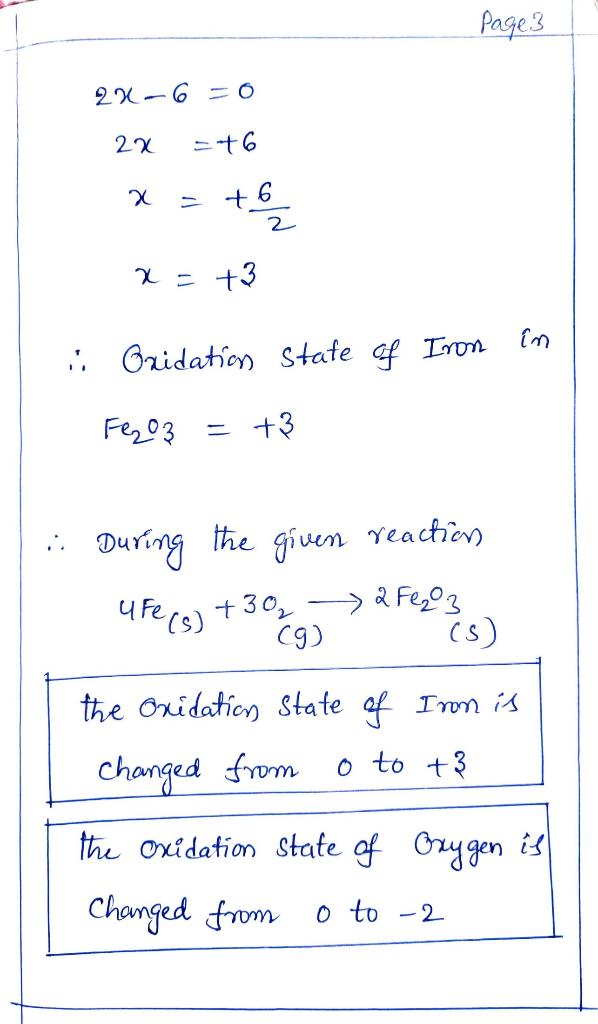 Page 3
2x - 6 = 0
2x = +6
x = +6/2
x = +3
∴ Oxidation state of Iron in
Fe₂O₃ = +3
∴ During the given reaction
4Fe(s) + 3O₂(g) → 2Fe₂O₃(s)
the oxidation state of Iron is
changed from 0 to +3
the oxidation state of Oxygen is
Changed from 0 to -2